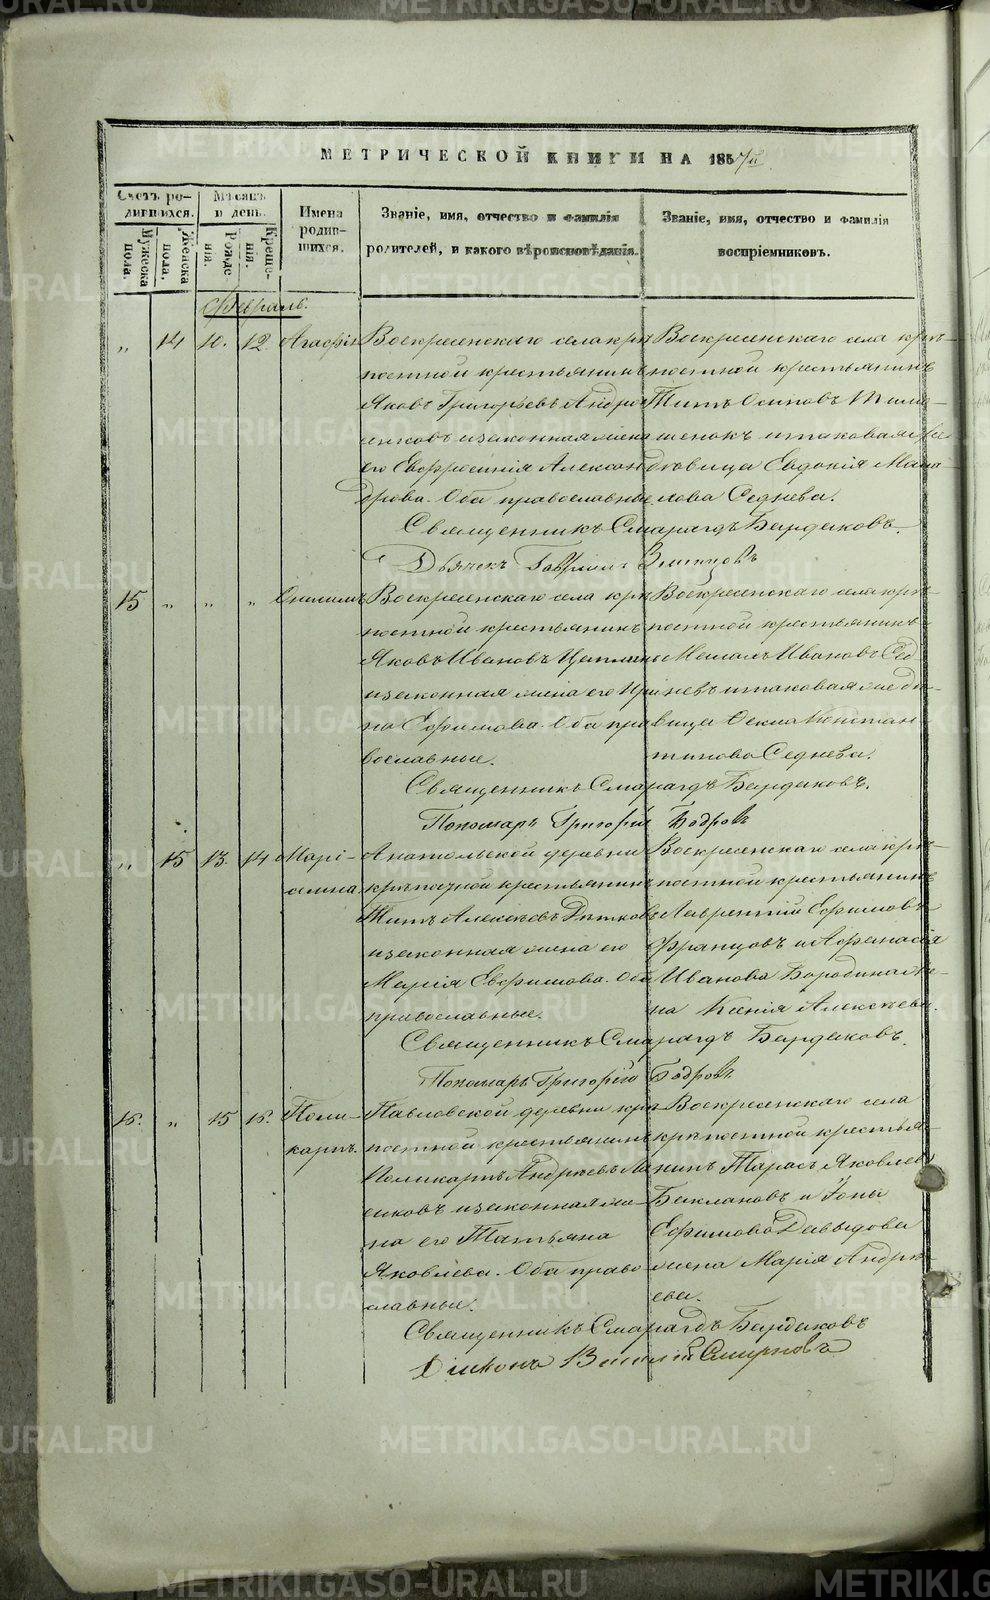 МЕТРИЧЕСКОЙ КНИГИ НА 1857й
Счетъ родившихся.
Мужеска пола.
Женска пола.
Мѣсяцъ и день.
Рожденія.
Крещенія.
Имена родившихся.
Званіе, имя, отчество и фамилія
родителей, и какого вѣроисповѣданія.
Званіе, имя, отчество и фамилія
воспріемниковъ.
Февраль.
" 14 10. 12. Агафія
Воскресенскаго села крѣ-
постной крестьянинъ
Яковъ Григорьевъ Андро
сиковъ изаконная жена
его Евфросинія Алексан
дрова. Оба православные
Воскресенскаго села крѣ-
постной крестьянинъ
Титъ Осиповъ
итаковая же
дѣвица Евдокія
Седнева.
Священникъ Смарагдъ Бардаковъ.
Дьячекъ Гавріилъ
15 " " " Онисимъ
Воскресенскаго села крѣ
постной крестьянинъ
Яковъ Ивановъ
изаконная жена его Ири
на Ефимова. Оба пра
вославные.
Воскресенскаго села крѣ-
постной крестьянинъ
Ивановъ Сед-
невъ итаковая же дѣ-
вица Ѳекла Констан
тинова Седнева.
Священникъ Смарагдъ Бардаковъ.
Пономарь Григорій Бодровъ
" 15 13. 14 Марі-
амна
Анатольской деревни
крѣпостной крестьянинъ
Титъ Алексѣевъ
изаконная жена его
Марія Евфимова. Оба
православные.
Воскресенскаго села крѣ-
постной крестьянинъ
Лаврентій Ефимовъ
Францовъ и Афанасія
Иванова Бородина же-
на Ксенія Алексѣева.
Священникъ Смарагдъ Бардаковъ.
Пономарь Григорій Бодровъ.
16. " 15 16. Поли-
карпъ.
Павловской деревни крѣ-
постной крестьянинъ
Поликарпъ Андреевъ
изаконная же-
на его Татьяна
Яковлева. Оба право
славные.
Воскресенскаго села
крѣпостной крестья-
нинъ Тарасъ Яковлевъ
Баклановъ и Іоны
Ефимова Давыдова
жена Марія Андре
ева.
Священникъ Смарагдъ Бардаковъ
Діаконъ Василій Смирновъ
METRIKI.GASO-URAL.RU